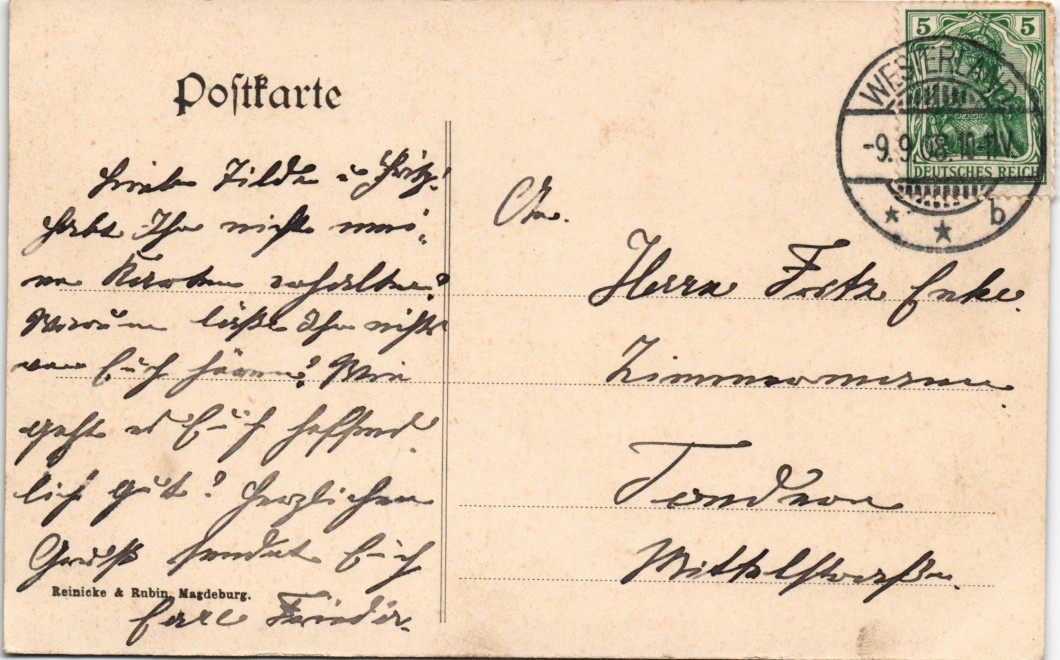 Postkarte
5 5
DEUTSCHES REICH
WESTERLAND
-9.9.08.10-11V.
b
Liebe Tilde u Fritz!
Habt Ihr nicht mei-
ne Karten erhalten?
Warum laßt Ihr nichts
von Euch hören? Wie
geht es Euch hoffent
lich gut? Herzlichen
Gruß sendet Euch
Reinicke & Rubin, Magdeburg.
An.
Herrn Fritz Enke
Zimmermann
Tondern
Mittelstraße.